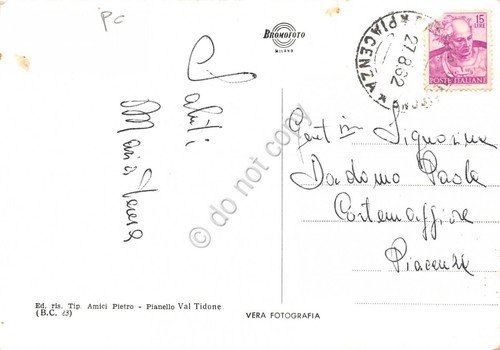 PC
BROMOFOTO
MILANO
Saluti
Maria Teresa
15
LIRE
POSTE ITALIANE
PIACENZA
27.8.62
Gent.im Signorina
Dadomo Paola
Cortemaggiore
Piacenza
Ed. ris. Tip. Amici Pietro - Pianello Val Tidone
(B.C. 23)
VERA FOTOGRAFIA
© do not copy